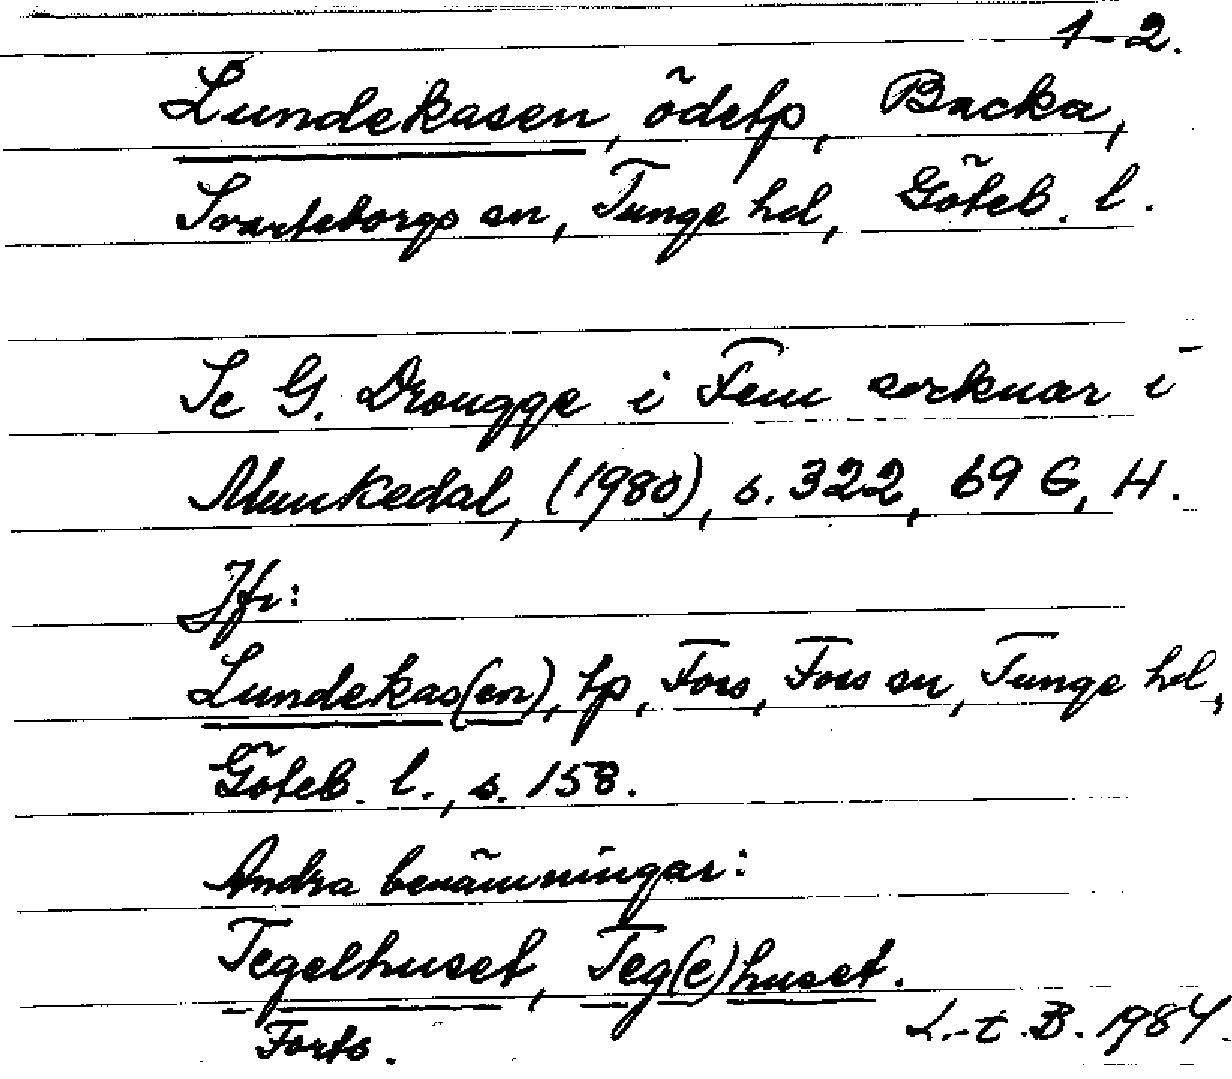 1-2.
Lundekasen, ödetp, Backa,
Svarteborgs sn, Tunge hd, Göteb. l.
Se G. Drougge i Fem socknar i
Munkedal, (1980), s. 322, 69 G, H.
Jfr:
Lundekas(en), tp, Fors, Fors sn, Tunge hd,
Göteb. l., s. 158.
Andra benämningar:
Tegelhuset, Teg(e)huset.
Forts.
L.-t. B. 1984.